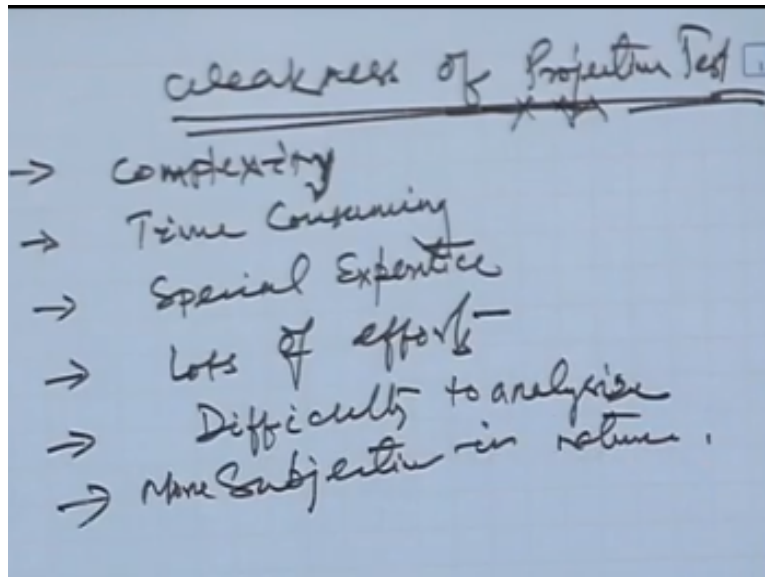 Weakness of Projective Test
→ Complexity
→ Time Consuming
→ Special Expertice
→ Lots of efforts
→ Difficulty to analysise
→ More Subjective in nature.